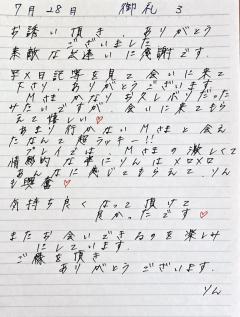 7月28日 御礼 3
お誘い頂き、ありがとう
ございました
素敵な出逢いに感謝です.
写メ日記等を見て会いに来て
下さり、ありがとうございます
Mさまかなりお久しぶりだった
みたいですが、会いに来てもら
えて嬉しい♡
あまり行かないMさまと会え
たなんて超ラッキー!!
プレイでは、Mさまの激しくて
情熱的な事にりんはメロメロ
あんなに感じてもらえて、りん
も興奮♡
気持ち良くなって頂けて
良かったです♡
またお会いできるのを楽しみ
にしています.
ご縁を頂き
ありがとうございます.
りん